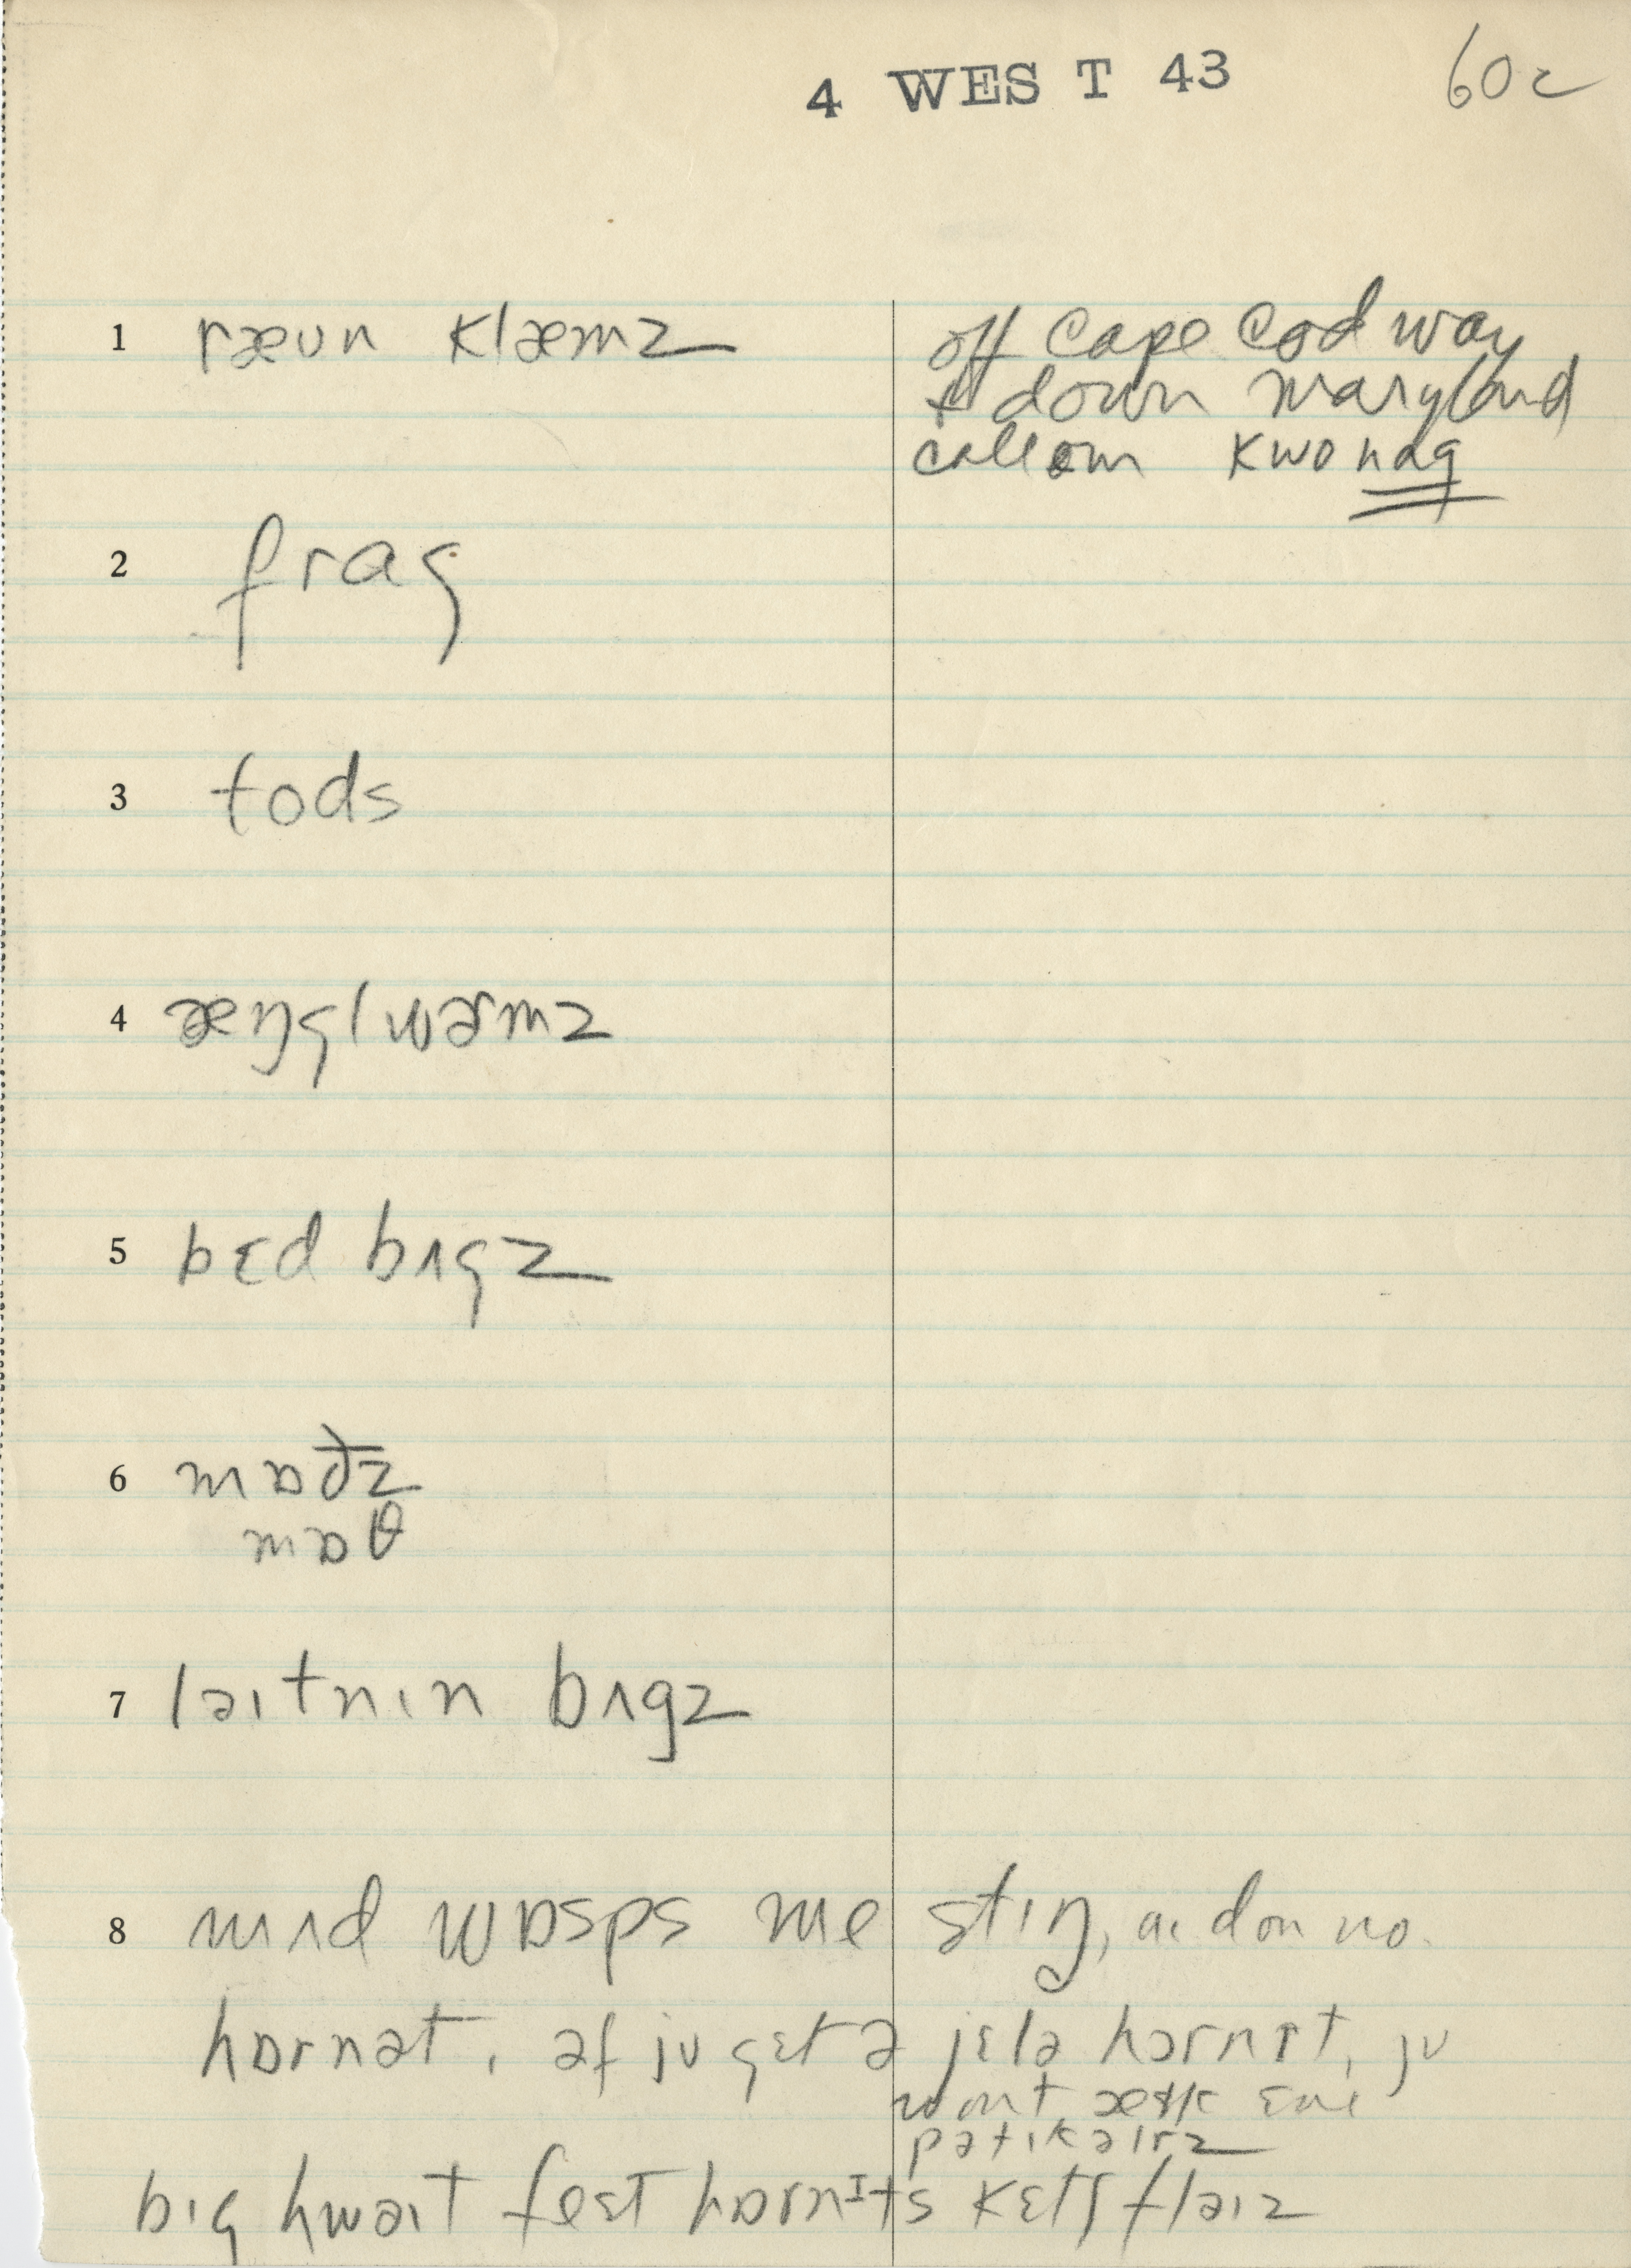 4 WEST 43 60c
1 ræʊn klæmz
off Cape Cod way
+ down Maryland
call em kwohɑg
2 frɑg
3 tods
4 æŋglwɚmz
5 bɛd bʌgz
6 mɒðz
mɒθ
7 ləɪtnɪn bʌgz
8 mʌd wɒsps me stɪŋ, aɪ don no.
hɒrnət, əf jʊ gɛt ə jɛlə hɔrnɪt, jʊ
wont æsk ɛnɪ
pətɪkəlrz
bɪg hwaɪt fest hɒrnɪts kɛtʃ flaɪz